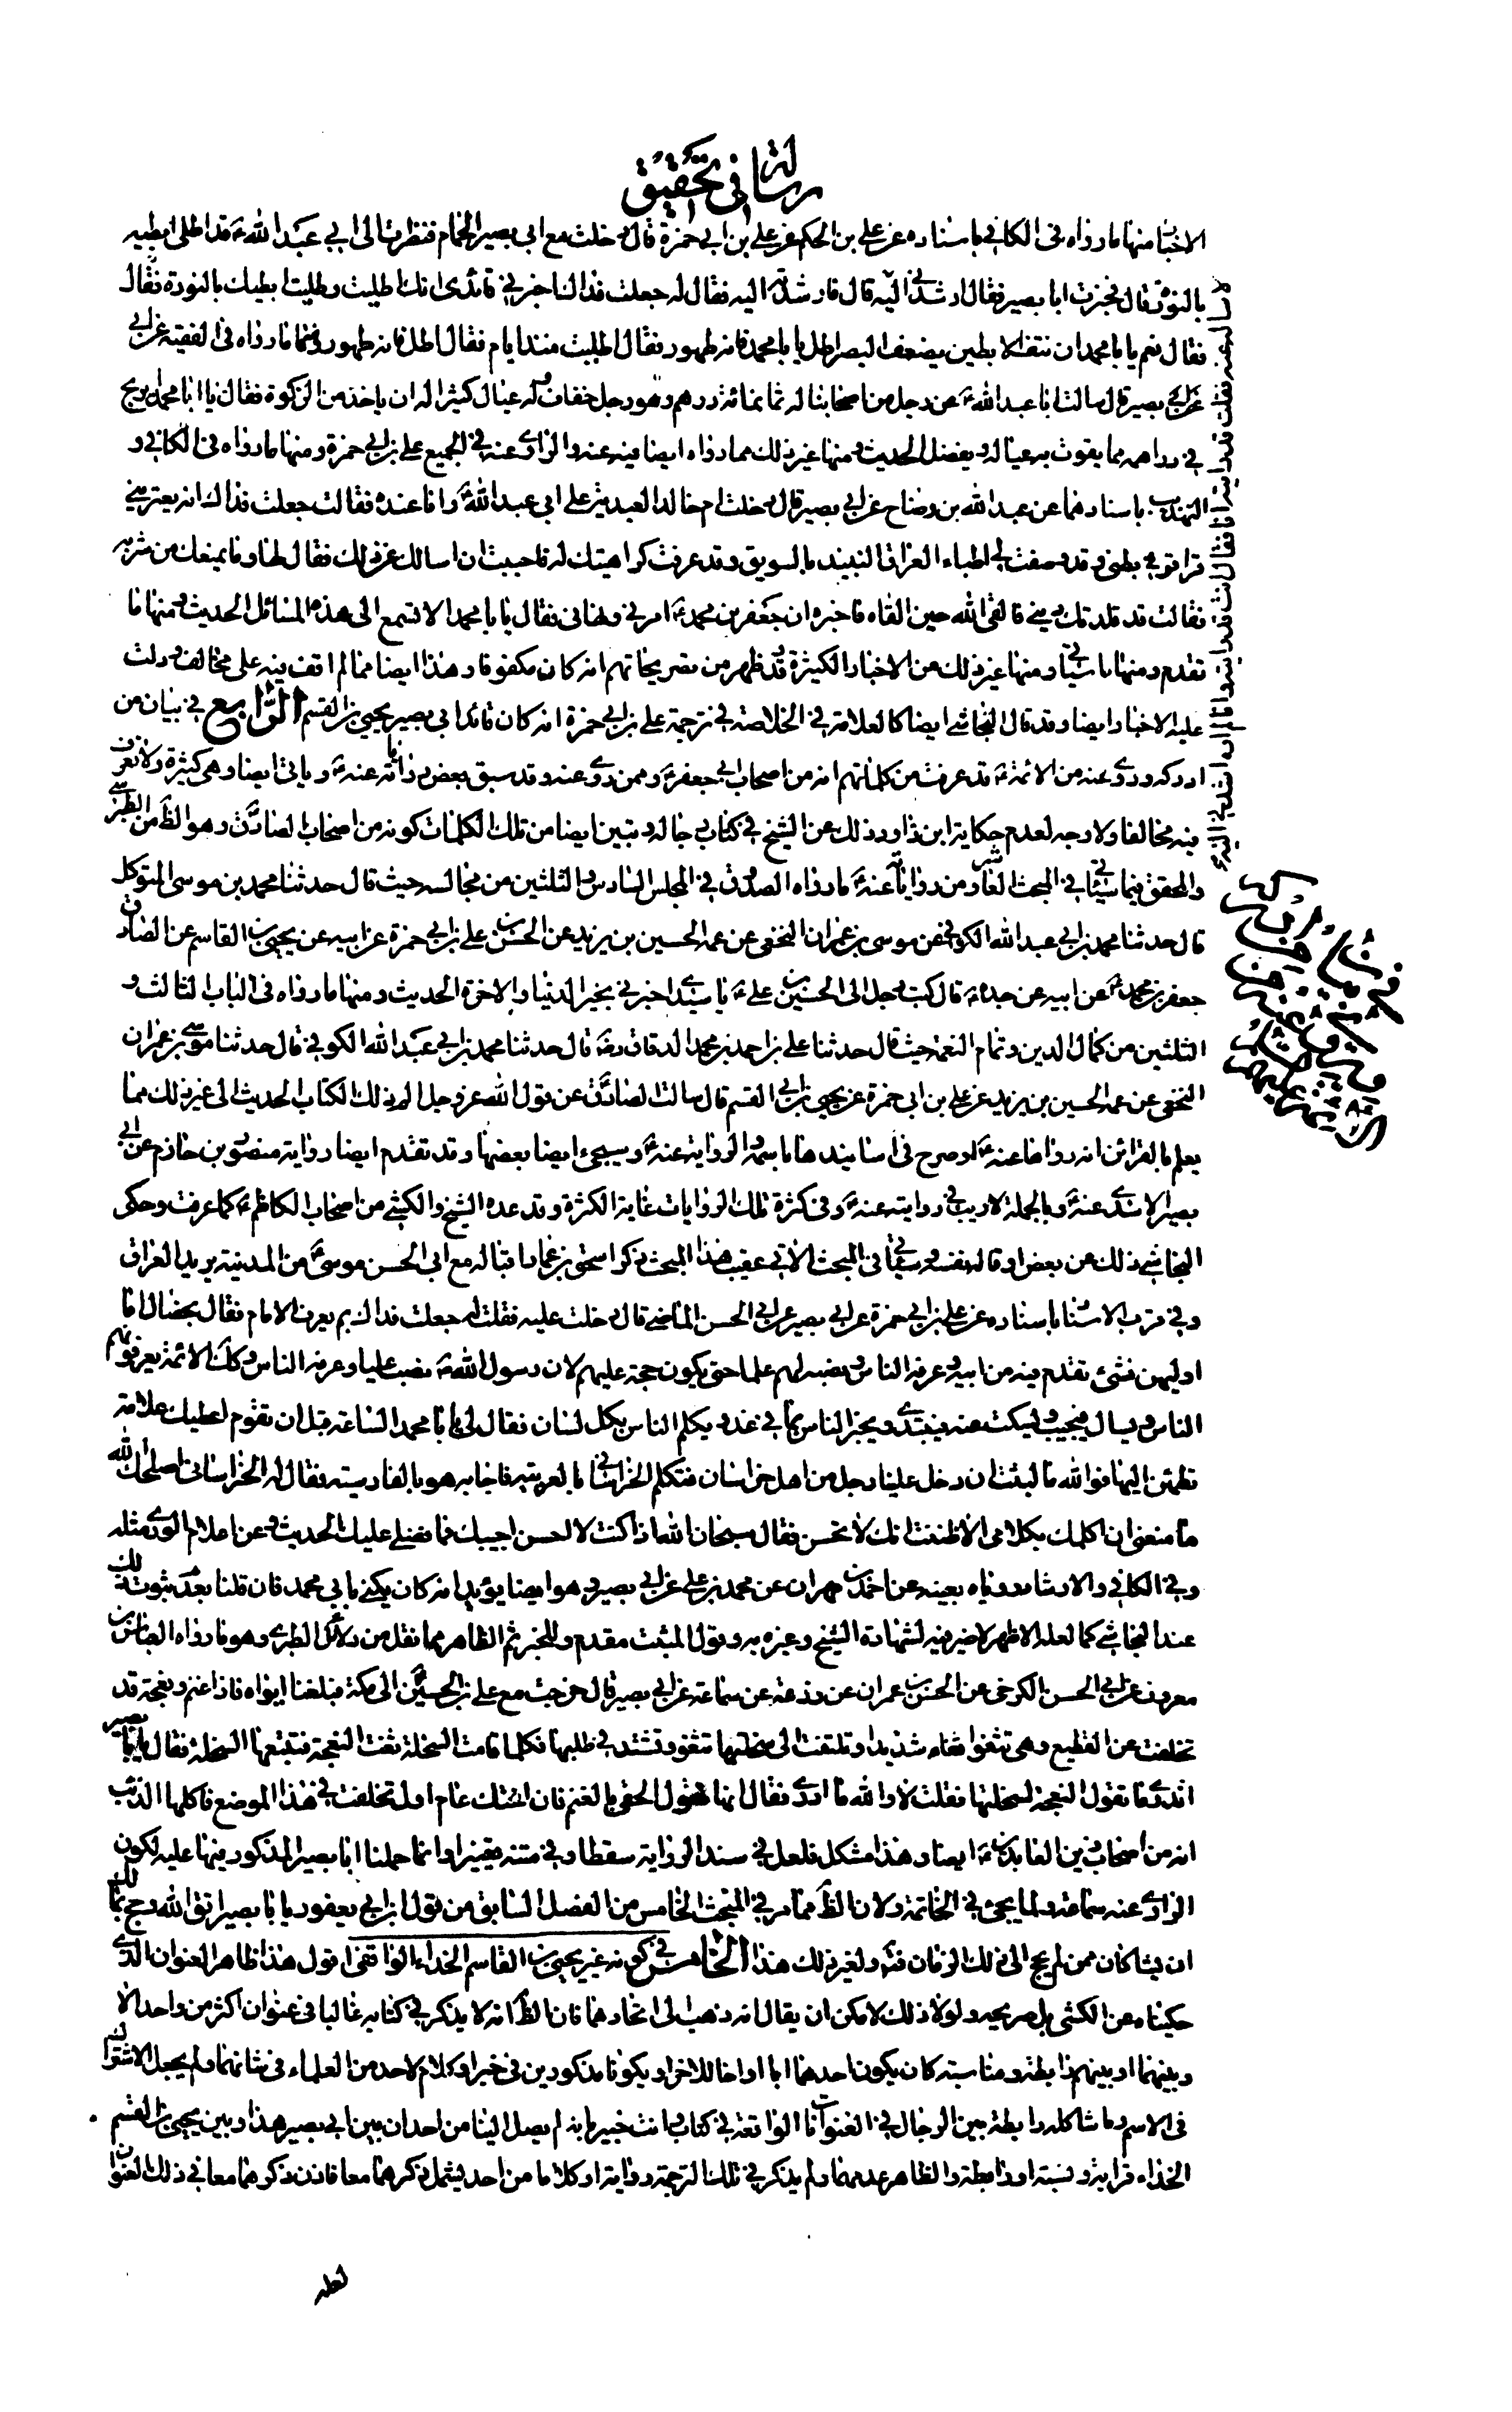 رسالة في تحقيق
الاخبار منها ما رواه في الكافي باسناده عن علي بن الحكم عن علي بن ابي حمزة قال دخلت مع ابي بصير الحمام فنظرت الى ابي عبد الله ع قد اطلى ابطيه
بالنورة قال فخبرت ابا بصير فقال ارشدني اليه قال فارشدته اليه فقال له جعلت فداك اخبرني قائدي انك اطليت وطليت ابطيك بالنورة فقال
فقال نعم يا با محمد ان نتف الابطين يضعف البصر اطل يا با محمد فانه طهور فقال اطليت منذ ايام فقال اطل فانه طهور ومنها ما رواه في الفقيه عن ابي
عن ابي بصير قال سالت ابا عبد الله ع عن رجل من اصحابنا له ثمانمائة درهم وهو رجل خفاف وله عيال كثير اله ان ياخذ من الزكوة فقال يا ابا محمد ايربح
في دراهمه مما يقوت به عياله ويفضل الحديث ومنها غير ذلك مما رواه ايضا فيه عنه والراوي عنه في الجميع علي بن ابي حمزة ومنها ما رواه في الكافي و
التهذيب باسنادهما عن عبد الله بن وضاح عن ابي بصير قال دخلت ام خالد العبدية على ابي عبد الله ع وانا عنده فقالت جعلت فداك انه يعتريني
قراقر في بطني وقد وصفت لي اطباء العراق النبيذ بالسويق وقد عرفت كراهيتك له فاحببت ان اسالك عن ذلك فقال لها وما يمنعك من شربه
فقالت قد قلدتك ديني فالقى الله حين القاه فاخبره ان جعفر بن محمد ع امرني ونهاني فقال يا با محمد الا تسمع الى هذه المسائل الحديث ومنها ما
تقدم ومنها ما سياتي ومنها غير ذلك من الاخبار الكثيرة وقد ظهر من تصريحاتهم انه كان مكفوفا وهذا ايضا مما لم اقف فيه على مخالف ودلت
عليه الاخبار وايضا وقد قال النجاشي ايضا كالعلامة في الخلاصة في ترجمة علي بن ابي حمزة انه كان قائد ابي بصير يحيى بن القسم الرابع في بيان من
ادركه وروى عنه من الائمة ع قد عرفت من كلماتهم انه من اصحاب ابي جعفر ع وممن روى عنه وقد سبق بعض رواياته عنه ع وياتي ايضا وهي كثيرة ولا نعرف
فيه مخالفا ولا وجه لعدم حكاية ابن داود ذلك عن الشيخ في كتاب رجاله وتبين ايضا من تلك الكلمات كونه من اصحاب الصادق ع وهو الظ من الطبرسي
والمحقق فيما سياتي في المبحث العاشر ومن رواياته عنه ع ما رواه الصدوق في المجلس السادس والثلثين من مجالسه حيث قال حدثنا محمد بن موسى المتوكل
قال حدثنا محمد بن ابي عبد الله الكوفي عن موسى بن عمران النخعي عن عمه الحسين بن يزيد عن الحسن بن علي بن ابي حمزة عن ابيه عن يحيى بن ابي القاسم عن الصادق
جعفر بن محمد ع عن ابيه عن جده ع قال كتب رجل الى الحسين بن علي ع يا سيدي اخبرني بخير الدنيا والاخرة الحديث ومنها ما رواه في الباب الثالث و
الثلثين من كمال الدين وتمام النعمة حيث قال حدثنا علي بن احمد بن محمد الدقاق رضه قال حدثنا محمد بن ابي عبد الله الكوفي قال حدثنا موسى بن عمران
النخعي عن عمه الحسين بن يزيد عن علي بن ابي حمزة عن يحيى بن ابي القسم قال سالت الصادق ع عن قول الله عز وجل الم ذلك الكتاب الحديث الى غير ذلك مما
يعلم بالقرائن انه رواها عنه ع او صرح في اسانيدها باسمه والرواية عنه ع وسيجيء ايضا بعضها وقد تقدم ايضا رواية منصور بن حازم عن ابي
بصير الاسدي عنه ع وبالجملة لا ريب في روايته عنه ع وفي كثرة تلك الروايات غاية الكثرة وقد عده الشيخ والكشي من اصحاب الكاظم ع كما عرفت وحكى
النجاشي ذلك عن بعض او قاله نفسه وسياتي في المبحث الاتي عقيب هذا المبحث ذكر اسحق بن عمار اقباله مع ابي الحسن موسى ع من المدينة يريد العراق
وفي قرب الاسناد باسناده عن علي بن ابي حمزة عن ابي بصير عن ابي الحسن الماضي قال دخلت عليه فقلت له جعلت فداك بم يعرف الامام فقال بخصال اما
اولهن فشيء تقدم فيه من ابيه وعرفه الناس ونصبه لهم علما حتى يكون حجة عليهم لان رسول الله ص نصب عليا وعرفه الناس وكذلك الائمة يعرفونهم
الناس ويسال فيجيب ويسكت عنه فيبتدي ويخبر الناس بما في غد ويكلم الناس بكل لسان فقال لي يا با محمد الساعة قبل ان تقوم اعطيك علامة
تطمئن اليها فوالله ما لبثت ان دخل علينا رجل من اهل خراسان فتكلم الخراساني بالعربية فاجابه هو بالفارسية فقال له الخراساني اصلحك الله
ما منعني ان اكلمك بكلامي الا ظننت انك لا تحسن فقال سبحان الله اذا كنت لا احسن اجيبك فما فضلي عليك الحديث وعن اعلام الورى مثله
وفي الكافي والارشاد روياه بعينه عن احمد بن مهران عن محمد بن علي عن ابي بصير وهو ايضا يؤيد انه كان يكنى بابي محمد فان قلنا بعدم ثبوت ذلك
عند النجاشي كما لعله الاظهر لا ضير فيه لشهادة الشيخ وغيره به وقول المثبت مقدم وللخبر ثم الظاهر مما نقل من دلائل الطبري وهو ما رواه العباس بن
معروف عن ابي الحسن الكرخي عن الحسن بن عمران عن زرعة عن سماعة عن ابي بصير قال خرجت مع علي بن الحسين ع الى مكة فبلغنا ابواه فاذا غنم ونعجة قد
تخلفت عن القطيع وهي تثغوا ثغاء شديدا وتلتفت الى سخلتها تثغو وتشتد في طلبها فكلما قامت السخلة ثغت النعجة فتتبعها السخلة فقال يا ابا بصير
اتدري ما تقول النعجة لسخلتها فقلت لا والله ما ادري فقال انها تقول الحقي بالغنم فان اختك عام اول تخلفت في هذا الموضع فاكلها الذئب
انه من اصحاب زين العابدين ع ايضا وهذا مشكل فلعل في سند الرواية سقطا وفي متنه تغييرا وانما حملنا ابا بصير المذكور فيها عليه لكون
الراوي عنه سماعة ولما يجيء في الخاتمة ولان الظ مما مر في المبحث الخامس من الفصل السابق من قول ابن ابي يعفور يا با بصير اتق الله وحج بمالك
ان ليثا كان ممن لم يحج الى ذلك الزمان فتد ولغير ذلك هذا الخامس في كونه غير يحيى بن القاسم الحذاء الواقفي اقول هذا ظاهر العنوان الذي
حكيناه عن الكشي بل صريحه ولولا ذلك لامكن ان يقال انه ذهب الى اتحادهما فان الظ انه لا يذكر في كتابه غالبا في عنوان اكثر من واحد الا
وبينهما او بينهم رابطة ومناسبة كان يكون احدهما ابا او اخا للاخر او يكونا مذكورين في خبر او كلام لاحد من العلماء في شانهما ولم يجعل الاشتراك
في الاسم وما شاكله رابطة بين الرجال في العنوانات الواقعة في كتابه وانت خبير بانه لم يصل الينا من احد ان بين ابي بصير هذا وبين يحيى بن القسم
الحذاء قرابة ونسبة او رابطة والظاهر عدمها ولم يذكر في تلك الترجمة رواية او كلاما من احد يشمل ذكرهما معا فاذن ذكرهما معا في ذلك العنوان
لعله